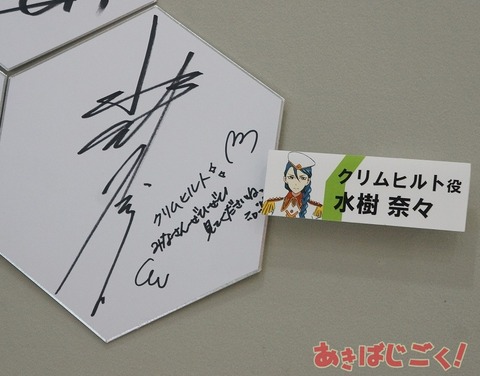 クリムヒルト
みなさんぜひぜひ
見てくださいね
クリムヒルト役
水樹 奈々
あきばじごく!